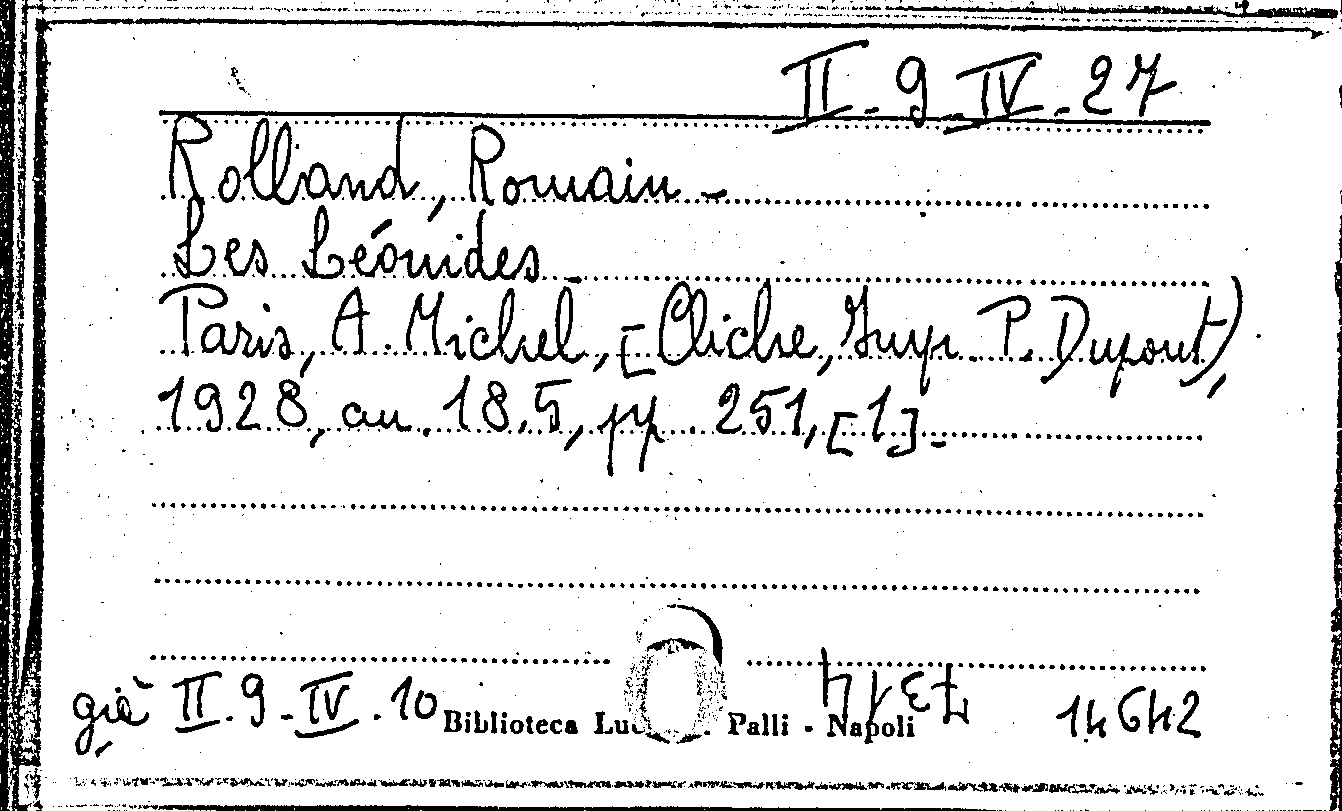 II. 9 - IV. 27
Rolland, Romain -
Les Léonides -
Paris, A. Michel, [Cliche, Imp. P. Dupont),
1928, au. 18.5, pp. 251, [1]. -
già II. 9 - IV. 10
Biblioteca Luc Palli - Napoli
14642